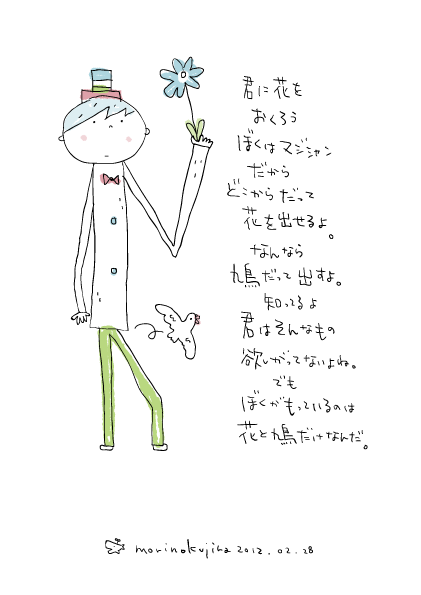 君に花を
おくろう
ぼくはマジシャン
だから
どこからだって
花を出せるよ。
なんなら
鳩だって出すよ。
知ってるよ
君はそんなもの
欲しがってないよね。
でも
ぼくがもっているのは
花と鳩だけなんだ。
morinokujira 2012.02.28